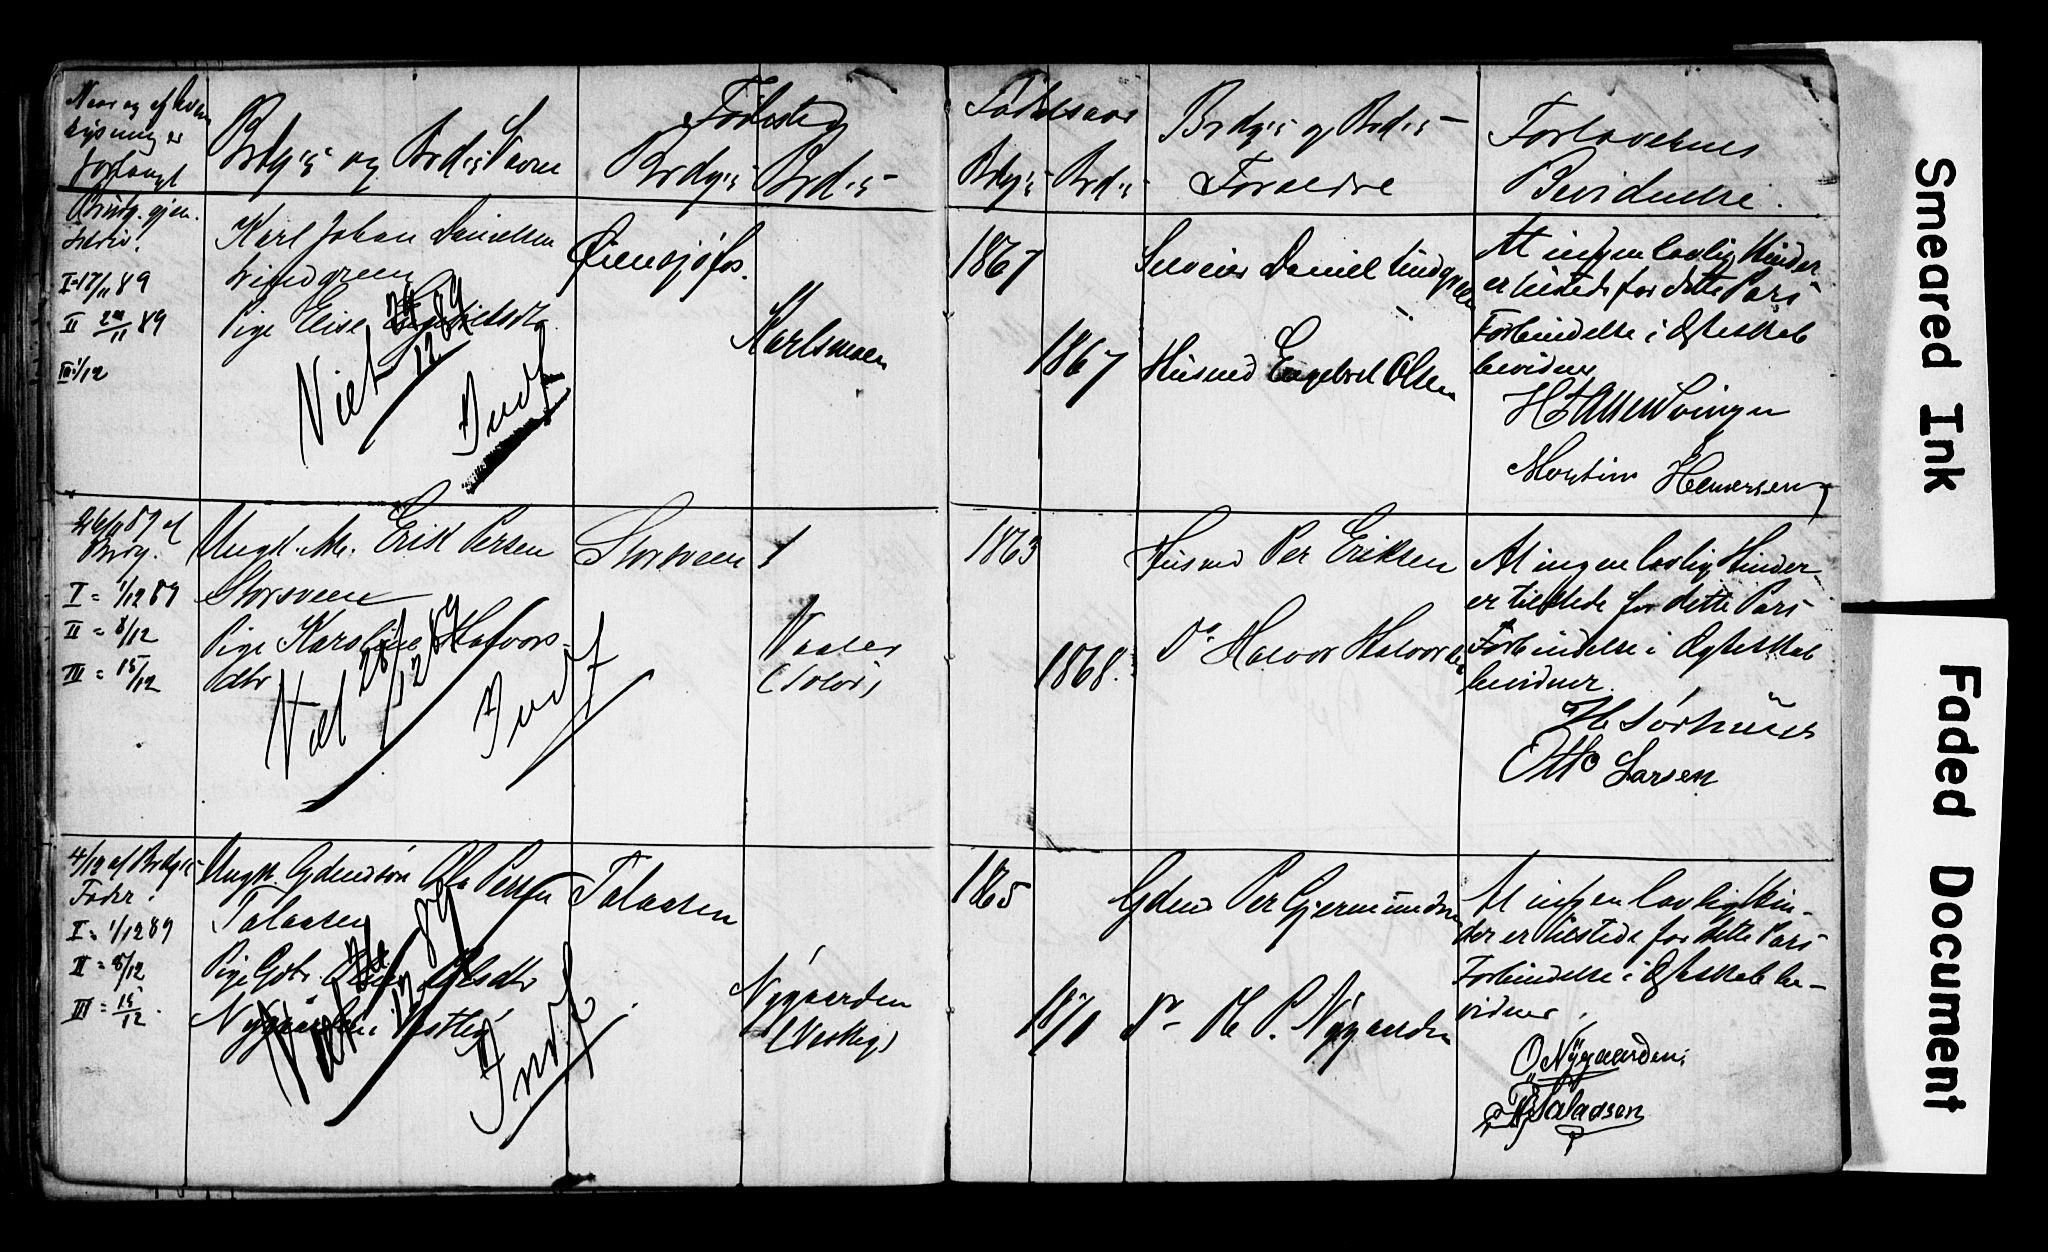 Naar og af hvem
lysning er
forlangt
Brdg's og Brd's Navne
Fødested
Brdg's Brd's
Fødselsaar
Brdg's Brd's
Brdg's og Brd's
Forældre
Forlovernes
Bevidnelse.
Brudg.
I 17/11 89
II 24/11 89
III 1/12
Karl Johan Danielsen
Lindgreen
Pige Elise Engebretsdtr
Viet 29/12 89
Indf
Øiensjøfos.
Karlsmoen
1867
1867
Daniel Lindgreen
Husmd Engebret Olsen
At ingen lovlig Hinder
er tilstede for dette Pars
Forbindelse i Ægteskab
bevidner
Morten
26/11 89 af
Brdg.
I = 1/12 89
II = 8/12
III = 15/12
Ungk. Erik Persen
Storsveen
Pige Karoline Halvors-
dtr
Viet 28/12 89
Indf
Storsveen
Vaaler
(Solør)
1863
1868.
Husmd Per Eriksen
Do Halvor Halvorsen
At ingen lovlig Hinder
er tilstede for dette Pars
Forbindelse i Ægteskab
bevidner
Otto Larsen
4/12 af Brdg's
Fader.
I = 1/12 89
II = 8/12
III = 15/12.
Ungk. Gdmdsøn Ola Persen
Talaasen
Pige Gdtr. Olsdtr
Nygaarden i Vestby
Viet 12 89
Indf
Talaasen
Nygaarden
(Vestby)
1865
1871
Gdmd Per Gjermundsen
Do Ol. P. Nygaarden
At ingen lovlig Hin-
der er tilstede for dette Pars
Forbindelse i Ægteskab be-
vidner
O Nygaarden
Talaasen
Smeared Ink
Faded Document